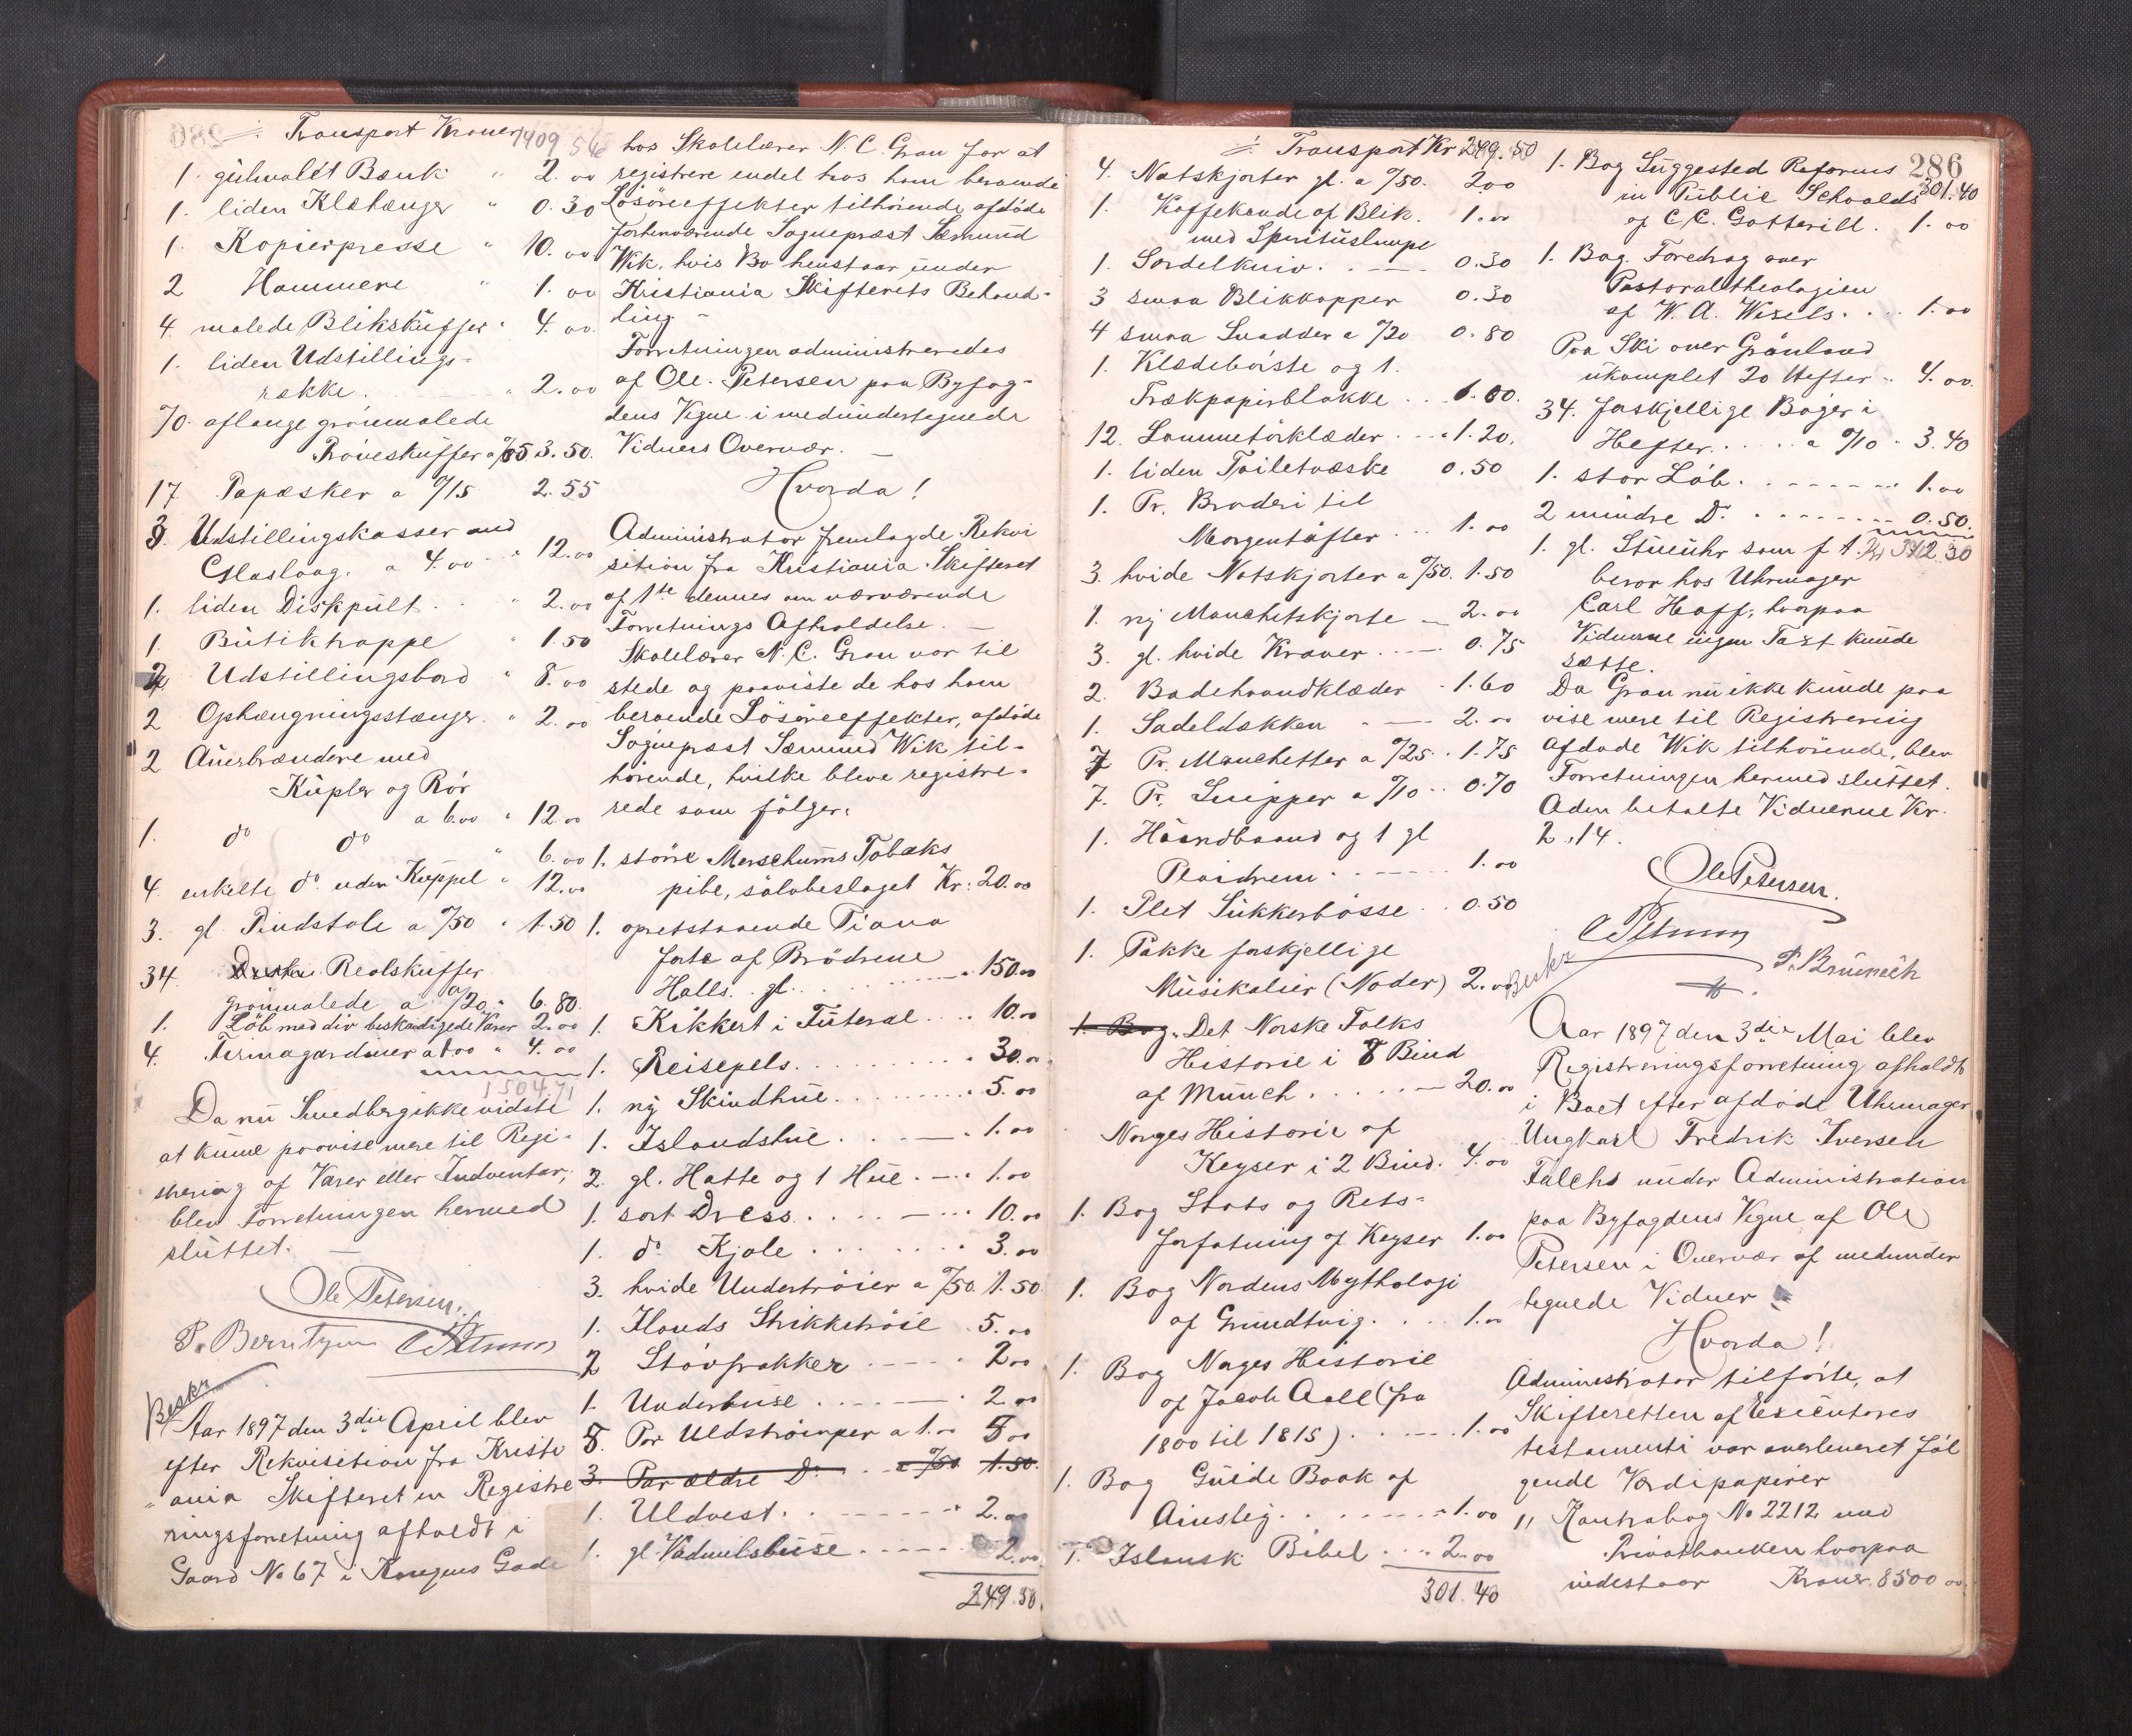 Transport Kroner 1409 56
1. gulmalet Bænk " 2.00
1. liden Klæhænger " 0.30
1. Kopierpresse " 10.00
2 Hammere " 1.00
4. malede Blikskuffer " 4.00
1. liden Udstillings-
række. " 2.00
70. aflange grönmalede
Pröveskuffer a 0/05 3.50.
17 Papæsker a 0/15 2.55
3 Udstillingskasser med
Glaslaag. a 4.00 " 12.00
1. liden Diskpult. " 2.00
1. Butiktrappe " 1.50
2 Udstillingsbord " 8.00
2 Ophængningsstænger. " 2.00
2 Auerbrændere med
Kupler og Rör
a 6.00 " 12.00
1. do do " 6.00
4. enkelte do. uden Kuppel " 12.00
3. gl. Pindstole a 0/50 " 1.50
34. Realskuffer
grönmalede a 0/20 " 6.80.
1. Löb med div beskadigede Varer 2.00
4. Firmagardiner a 1.00 " 4.00
1504.71
Da nu Smedberg ikke vidste
at kunne paavise mere til Regi-
strering af Varer eller Indventar,
blev Forretningen hermed
sluttet. —
Ole Petersen.
Beskr
Aar 1897 den 3die April blev
efter Rekvisition fra Kristi
" ania Skifteret en Registre
ringsforretning afholdt i
Gaard No 67 i Kongens Gade
hos Skolelærer N. C. Gran for at
registrere endel hos ham beroende
Lösöreeffekter tilhörende afdöde
forhenværende Sognepræst Sæmund
Wik, hvis Bo henstaar under
Kristiania Skifterets Behand-
ling. -
Forretningen administreredes
af Ole. Petersen paa Byfog-
dens Vegne i medundertegnede
Vidners Overvær. —
Hvorda!
Administrator fremlagde Rekvi
sition fra Kristiania Skifteret
af 1ste dennes om nærværende
Forretnings Afholdelse. —
Skolelærer N. C. Gran var til
stede og paaviste de hos ham
beroende Lösöreeffekter, afdöde
Sognepræst Sæmund Wik til-
hörende, hvilke bleve registre-
rede som fölger:
1. större Merschums Tobaks
pibe, sölvbeslaget Kr. 20.00
1. opretstaaende Piano
forte af Brödrene
Halls. gl. 150.00
1. Kikkert i Futeral 10.00
1. Reisepels. 30.00
1. ny Skindhue. 5.00
1. Islandshue. 1.00
2. gl. Hatte og 1 Hue. 1.00
1. sort Dress 10.00
1. do Kjole 3.00
3. hvide Undertröier a 0/50. 1.50.
1. Islands Strikketröie 5.00
2 Stövfrakker 2.00
1. Underbuxe 2.00
5. Par Uldströmper a 1.00 5.00
3. Par ældre Do. a 0/50 1.50.
1. Uldvest. 2.00
1. gl. Vadmelsbuxe 2.00
249.50.
Transport Kr. 249.50
4. Natskjorter gl. a 0/50. 2.00
1. Kaffekande af Blik. 1.00
med Spirituslampe
1. Sardelkniv. 0.30
3 smaa Blikkopper 0.30
4 smaa Snadder a 0/20 0.80
1. Klædebörste og 1.
Trækpapirblokke 1.00.
12. Lommetörklæder 1.20.
1. liden Toiletvæske 0.50
1. Pr. Broderi til
Morgentöfler 1.00
3. hvide Natskjorter a 0/50. 1.50
1. ny Manchetskjorte 2.00
3. gl. hvide Kraver. 0.75
2. Badehaandklæder 1.60
1. Sadeldækken 2.00
7 Pr. Manchetter a 0/25 1.75
7. Pr. Snipper a 0/10 0.70
1. Haandbaand og 1 gl
Plaidrem 1.00
1. Plet Sukkerbösse. 0.50
1. Pakke forskjellige
Musikalier (Noder) 2.00
1. Bog. Det Norske Folks
Historie i 8 Bind
af Munch. 20.00
Norges Historie af
Keyser i 2 Bind. 4.00
1. Bog Stats og Rets-
forfatning af Keyser 1.00
1. Bog Nordens Mythologi
af Grundtvig. 1.00
1. Bog Norges Historie
af Jacob Aall (fra
1800 til 1815) 1.00
1. Bog Guide Book of
Ainsley. 1.00
1. Islansk Bibel 2.00
301.40
286
1. Bog Suggested Reforms
301.40
in Public Schoolds
of C. C. Gotterill. 1.00
1. Bog. Foredrag over
Pastoraltheologien
af W. A. Wexels. 1.00
Paa Ski over Grönland
ukomplet 20 Hefter 4.00.
34. forskjellige Böger i
Hefter a 0/10 3.40
1. stor Löb. 1.00
2 mindre Do. 0.50.
1. gl. Stueuhr som f. t. Kr 312.30
beror hos Uhrmager
Carl Hoff, hvorpaa
Vidnerne ingen Taxt kunde
sætte.
Da Gran nu ikke kunde paa
vise mere til Registrering
Afdöde Wik tilhörende, blev
Forretningen hermed sluttet.
Aden betalte Vidnerne Kr.
2,14.
Ole Petersen.
Beskr
Aar 1897 den 3die Mai blev
Registreringsforretning afholdt
i Boet efter afdöde Uhrmager
Ungkarl Fredrik Iversen
Falchs under Administration
paa Byfogdens Vegne af Ole
Petersen i Overvær af medunder
tegnede Vidner
Hvorda!
Administrator tilförte, at
Skifteretten af Executores
testamenti var overleveret föl
gende Værdipapirer
1, Kontrabog No 2212 med
Privatbanken hvorpaa
indestaar Kroner. 8500 00.